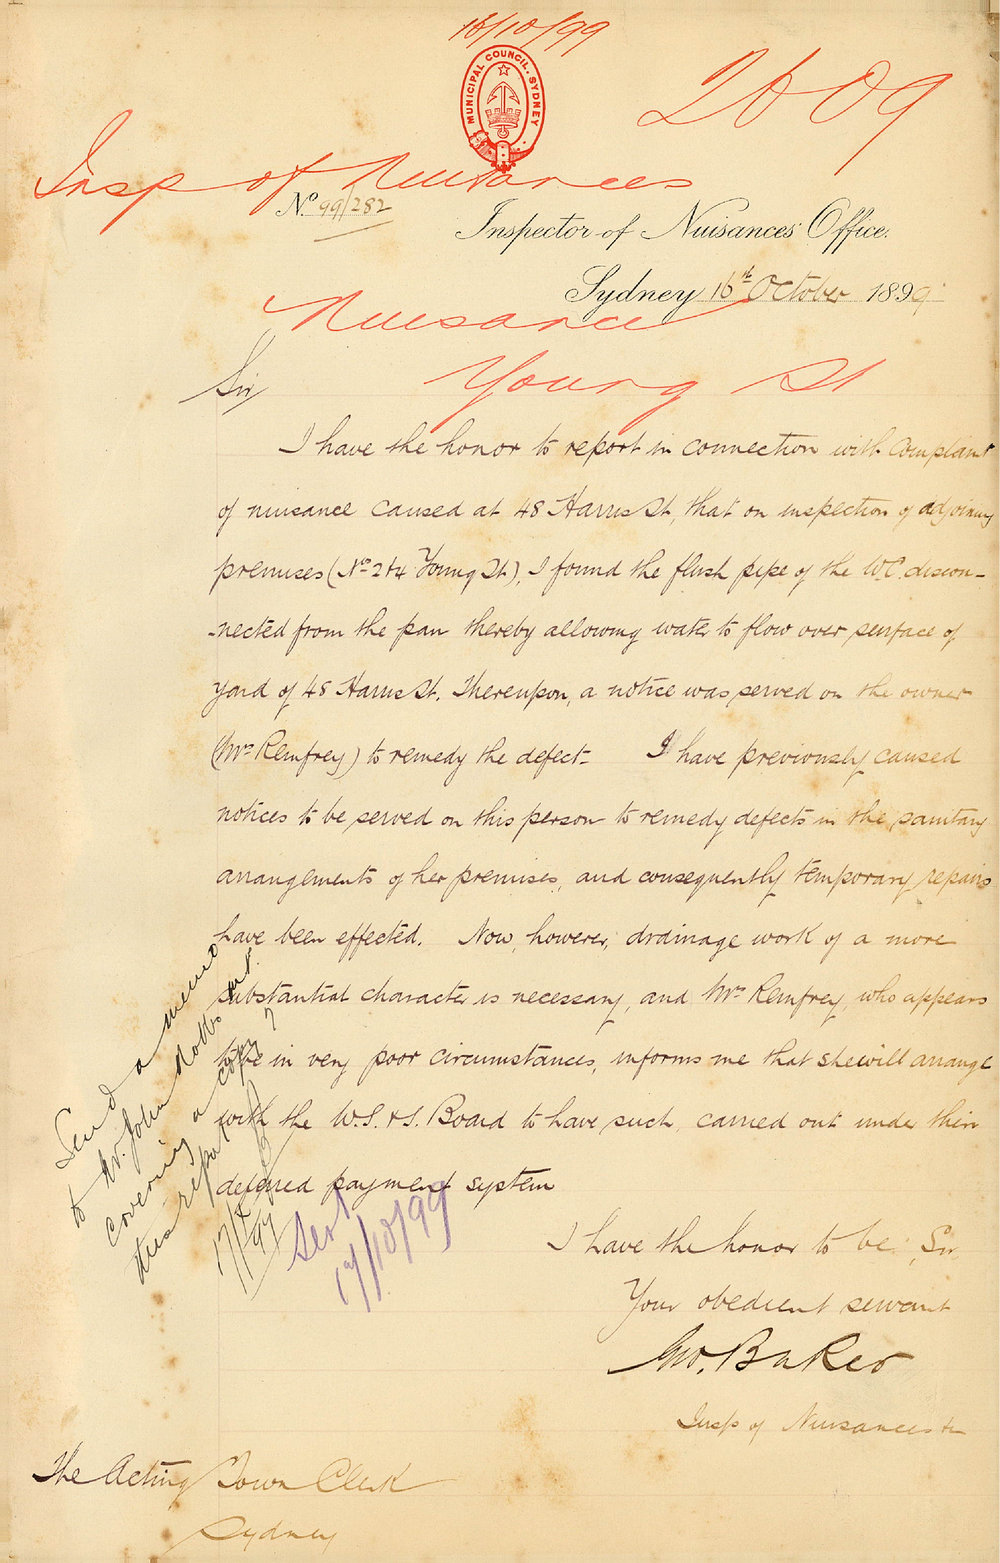 16/10/99
MUNICIPAL COUNCIL. SYDNEY
2609
Insp of Nuisances
No. 99/282
Inspector of Nuisances Office.
Sydney 16th October 1899
Nuisance
Young St
Sir
I have the honor to report in connection with Complaint
of nuisance caused at 48 Harris St, that on inspection of adjoining
premises (Nos 2 & 4 Young St), I found the flush pipe of the W.C. discon-
-nected from the pan thereby allowing water to flow over surface of
yard of 48 Harris St. Thereupon, a notice was served on the owner
(Mrs Remfrey) to remedy the defect. I have previously caused
notices to be served on this person to remedy defects in the sanitary
arrangements of her premises, and consequently temporary repairs
have been effected. Now, however, drainage work of a more
substantial character is necessary, and Mrs Remfrey, who appears
to be in very poor circumstances, informs me that she will arrange
with the W.S. & S. Board to have such, carried out under their
deferred payment system
Send a memo
to Mr. John
covering a copy of
this report
17/10/99
Sent
17/10/99
I have the honor to be, Sir
Your obedient servant
Geo. Baker
Insp of Nuisances &c
The Acting Town Clerk
Sydney